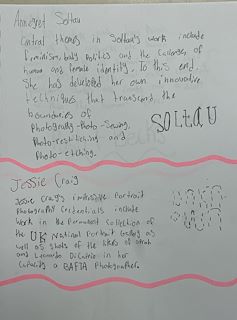 Annegret Soltau
Central themes in Soltau's work include
feminism, body politics and the
human and female identity. To this end,
She has developed her own innovative
techniques that transcend the
boundaries of
Photography-Photo-sewing,
Photo-restitching and
Photo-etching.
SOLTAU
Jessie Craig
Jessie Craig's impressive portrait
Photography credentials include
work in the permanent collection of
the UK National Portrait Gallery as
well as shots of the likes of
and Leonardo DiCaprio in her
capacity a BAFTA Photographer.